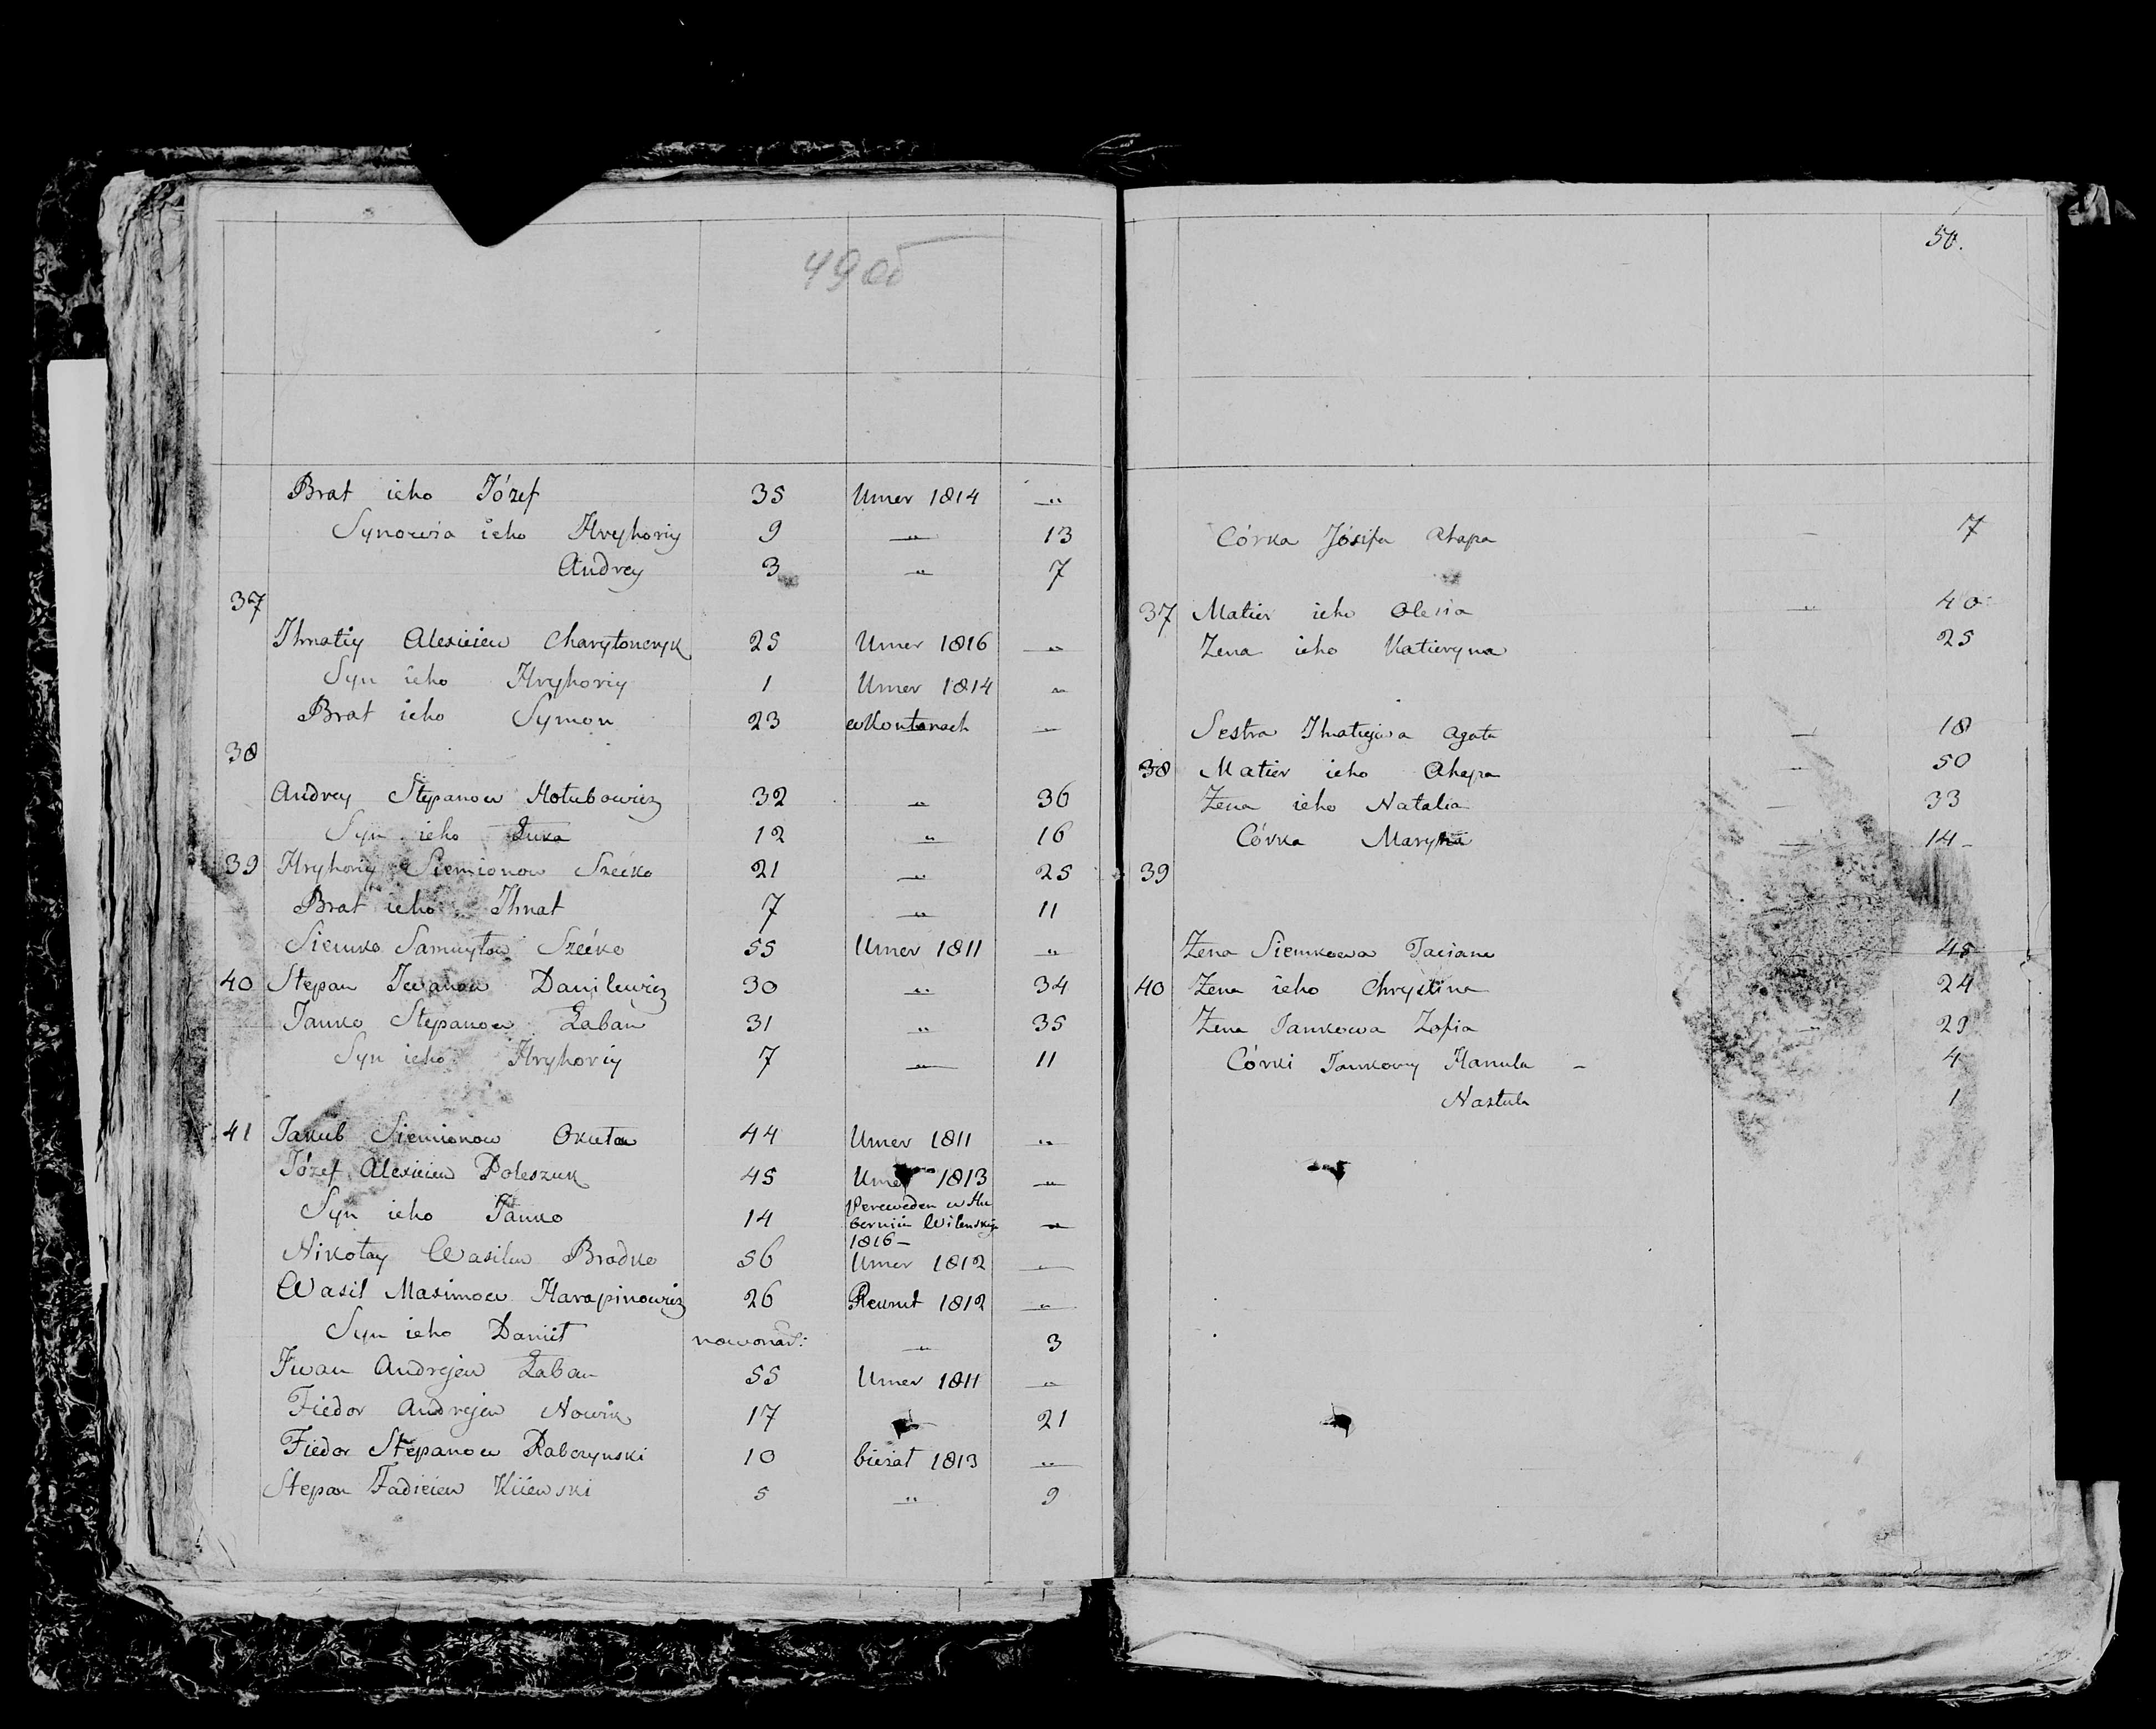 49 об
Brat ieho Józef 35 Umer 1814 — " —
Synowia ieho Hryhoriy 9 — " — 13
Andrey 3 — " — 7
37
Ihnatiy Alexieiew Charytonczyk 25 Umer 1816 — " —
Syn ieho Hryhoriy 1 Umer 1814 — " —
Brat ieho Symon 23 w Kontonach — " —
38
Andrey Stepanow Hołubowicz 32 — " — 36
Syn ieho Łuka 12 — " — 16
39 Hryhoriy Siemionow Szećko 21 — " — 25
Brat ieho Ihnat 7 — " — 11
Siemko Samuyłow Szećko 55 Umer 1811 — " —
40 Stepan Iwanow Danilewicz 30 — " — 34
Janko Stepanow Łaban 31 — " — 35
Syn ieho Hryhoriy 7 — " — 11
41 Jakub Siemionow Okuła 44 Umer 1811 — " —
Józef Alexieiew Poleszuk 45 Umer 1813 — " —
Syn ieho Janko 14 Pereweden w Hu
bernii Wilenskiy — " —
1816 —
Nikołay Wasilew Bradko 56 Umer 1812 — " —
Wasil Maximow Harapinowicz 26 Rekrut 1812 — " —
Syn ieho Daniił nowonar: — " — 3
Iwan Andrejew Łaban 55 Umer 1811 — " —
Fiedor Andrejew Nowik 17 — " — 21
Fiedor Stepanow Rabczynski 10 bieżał 1813 — " —
Stepan Fadieiew Kiiewski 5 — " — 9
50.
Córka Józifa Ahapa — 7
37 Matier ieho Olesia — " — 40
Żena ieho Katieryna 25
Sestra Ihnatiejowa Agata — " — 18
38 Matier ieho Ahapa — " — 50
Żena ieho Natalia — 33
Córka Maryna — " — 14 -
39
Żena Siemkowa Taciana 45
40 Żena ieho Chrystina 24
Żena Jankowa Zofia — " — 29
Córki Jankowy Hanula - 4
Nastula 1